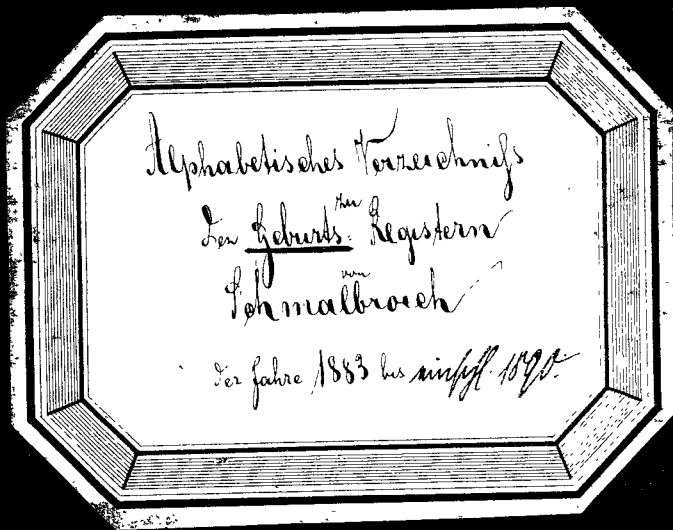 Alphabetisches Verzeichniß
zu
den Geburts-Registern
von
Schmalbroich
der Jahre 1883 bis einschl. 1890.